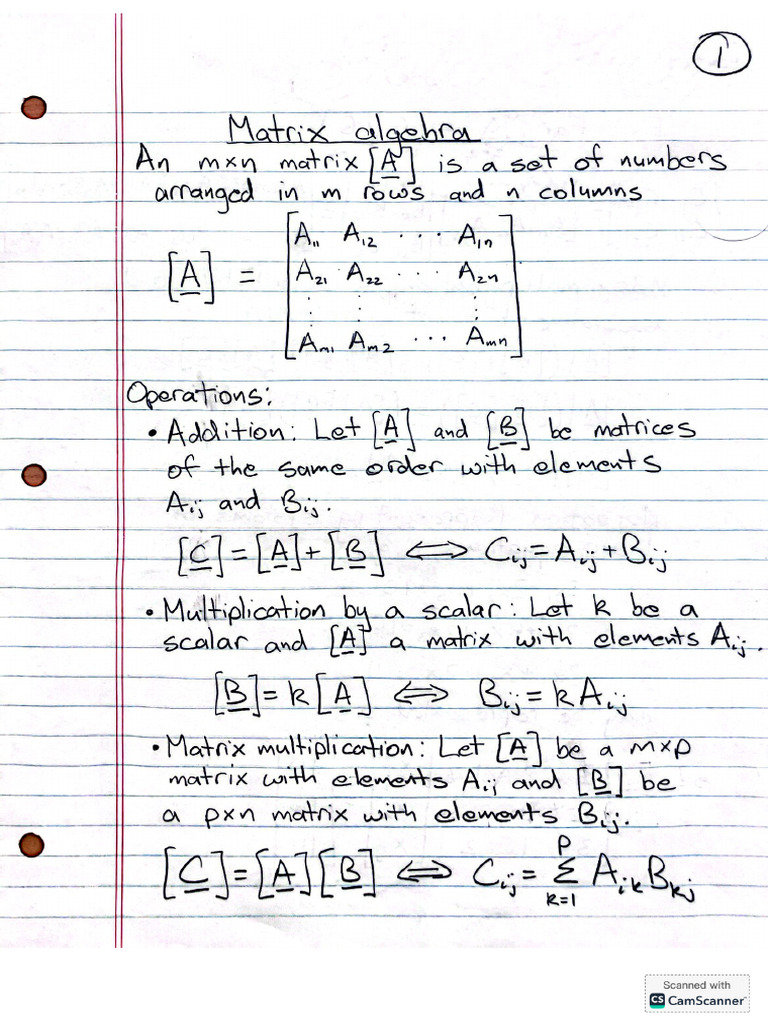 1
Matrix algebra
An m×n matrix [A] is a set of numbers
arranged in m rows and n columns
[A] = [A₁₁ A₁₂ ··· A₁n
A₂₁ A₂₂ ··· A₂n
⋮ ⋮ ⋮
Am₁ Am₂ ··· Amn]
Operations:
• Addition: Let [A] and [B] be matrices
of the same order with elements
Aij and Bij.
[C] = [A] + [B] ⟺ Cij = Aij + Bij
• Multiplication by a scalar: Let k be a
scalar and [A] a matrix with elements Aij.
[B] = k[A] ⟺ Bij = kAij
• Matrix multiplication: Let [A] be a m×p
matrix with elements Aij and [B] be
a p×n matrix with elements Bij.
[C] = [A][B] ⟺ Cij = Σ(k=1 to p) Aik Bkj
Scanned with
CS CamScanner